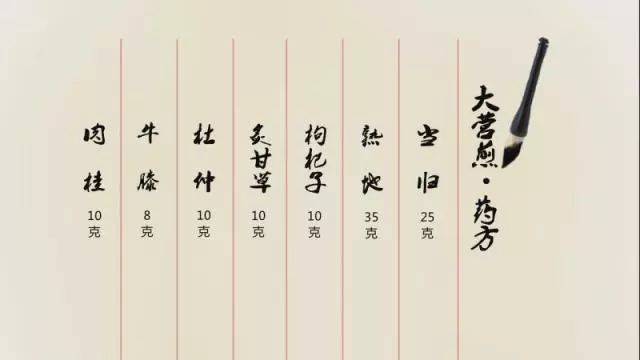 大营煎·药方
当归 25克
熟地 35克
枸杞子 10克
炙甘草 10克
杜仲 10克
牛膝 8克
肉桂 10克